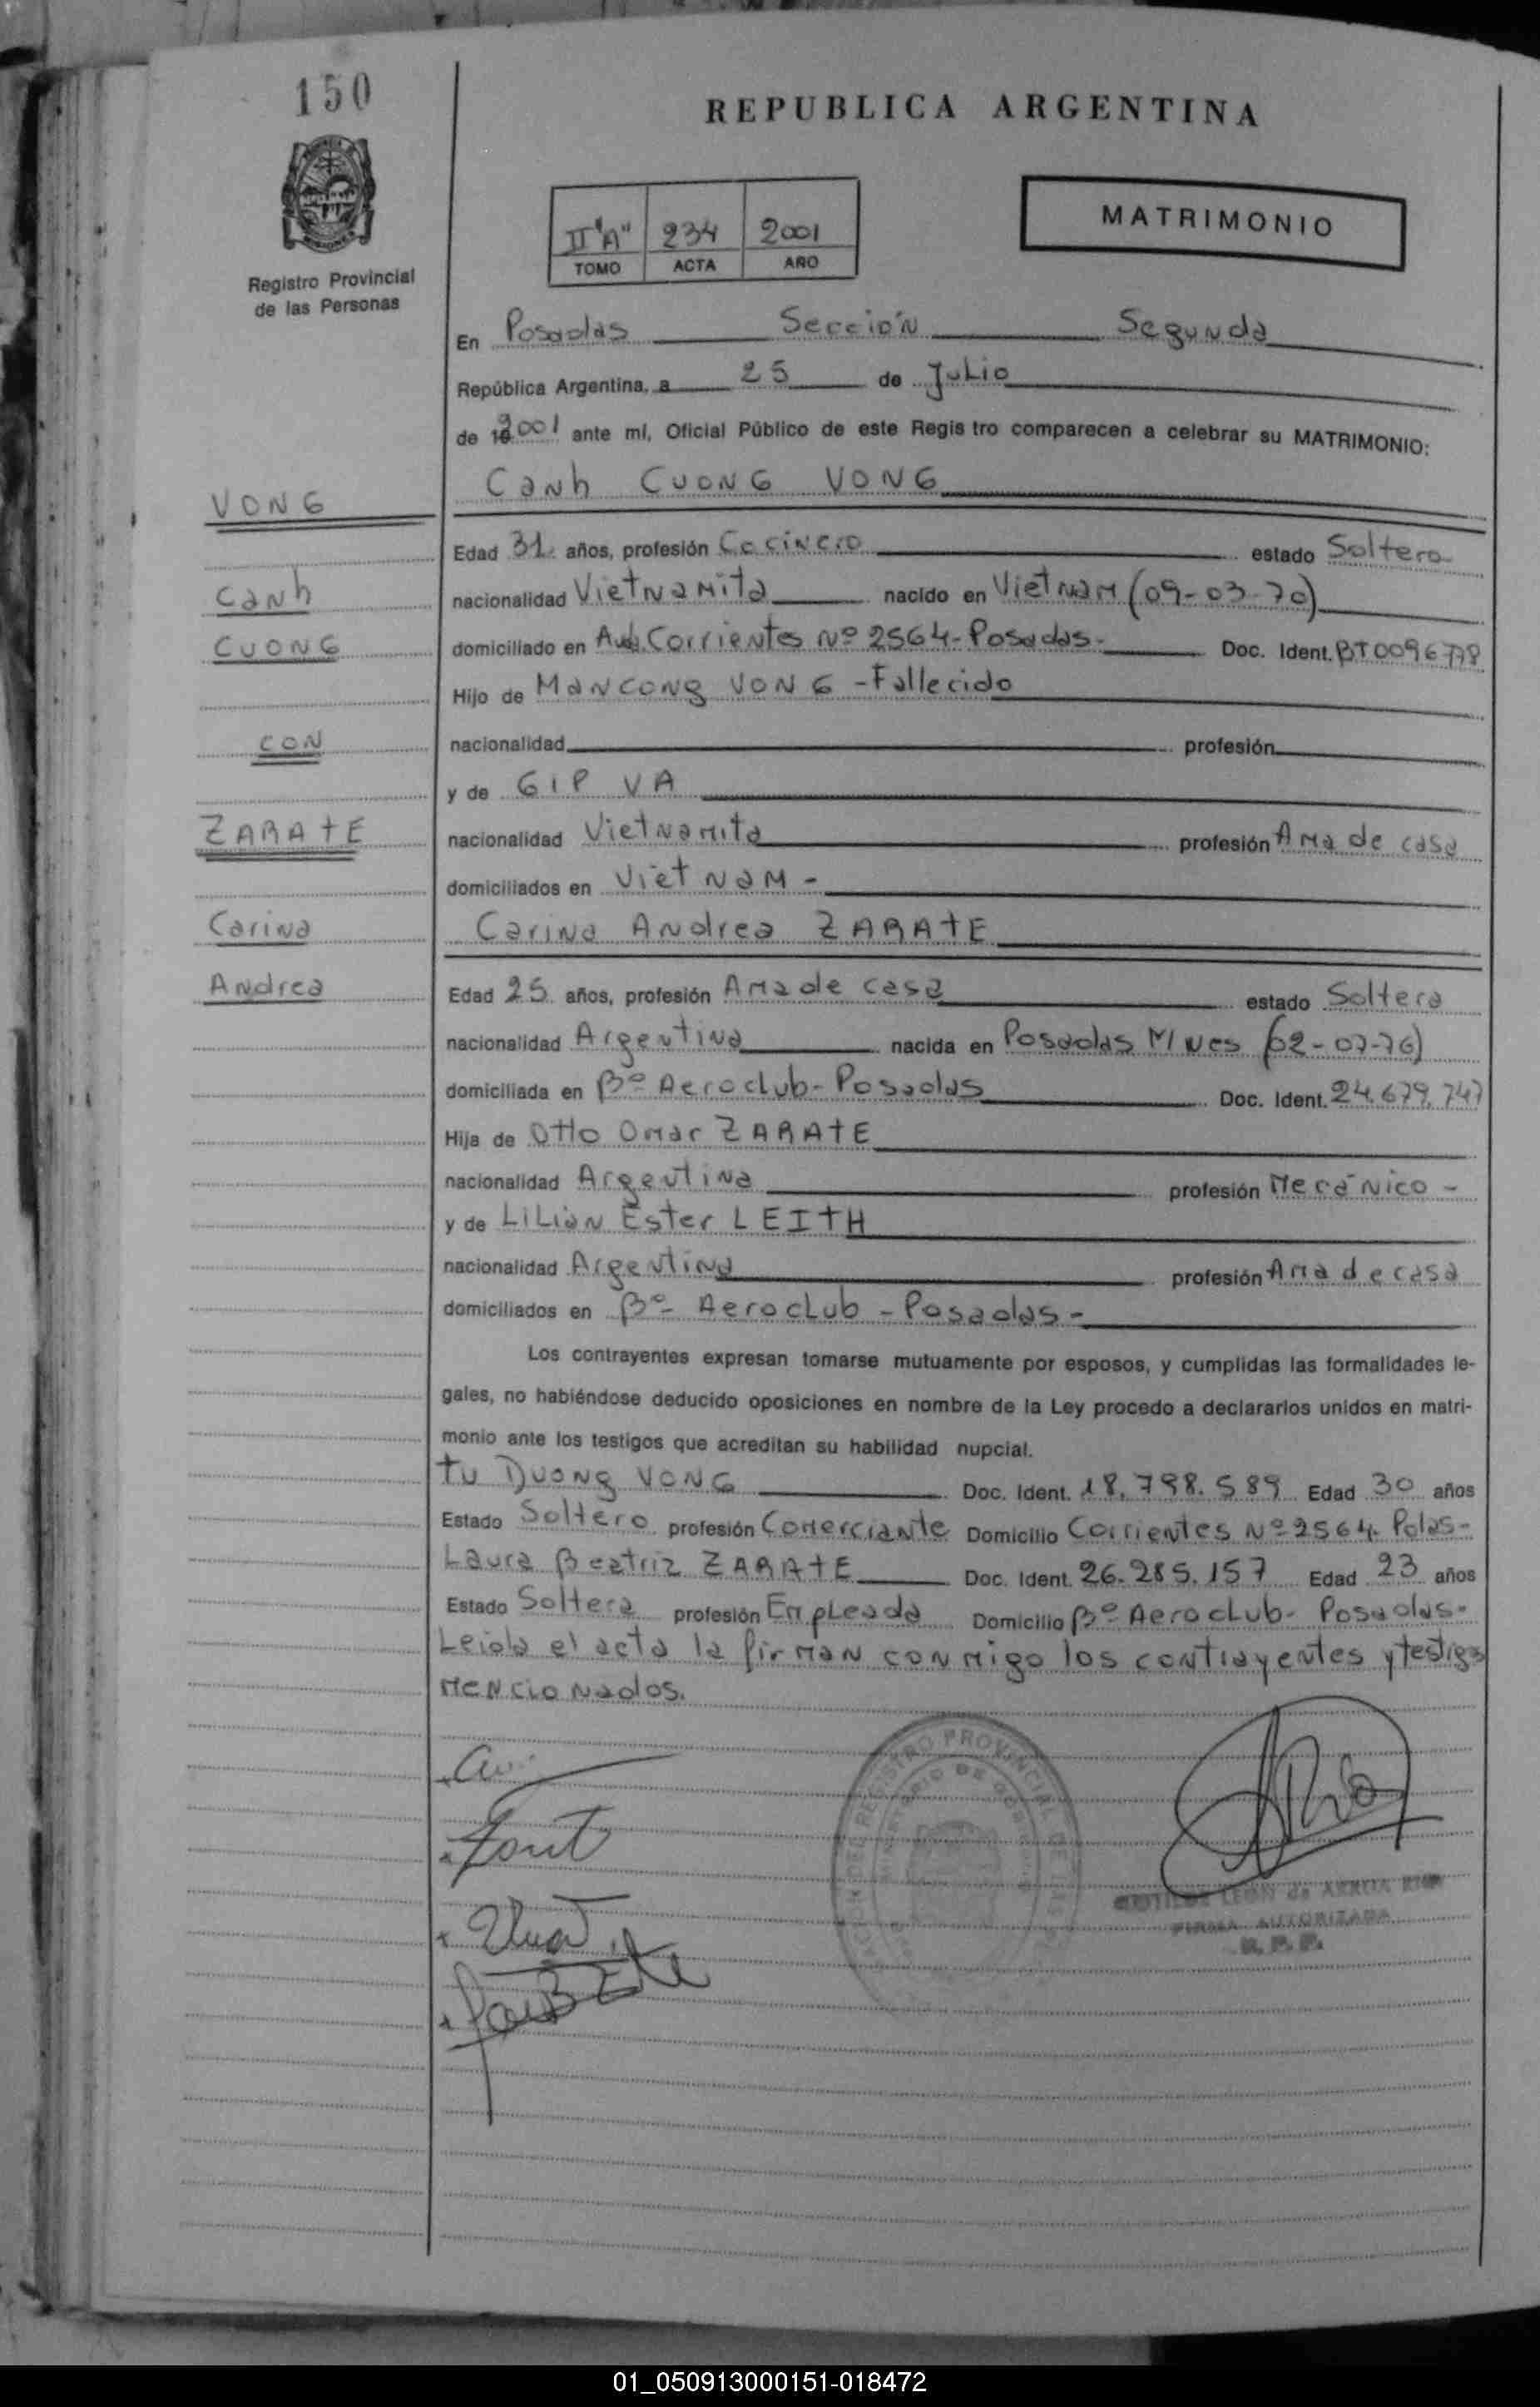 150
REPUBLICA ARGENTINA
II "A" 234 2001
TOMO ACTA AÑO
MATRIMONIO
Registro Provincial
de las Personas
En Posadas Sección Segunda
República Argentina, a 25 de Julio
de 2001 ante mí, Oficial Público de este Regis tro comparecen a celebrar su MATRIMONIO:
VONG
Canh CUONG VONG
Edad 31 años, profesión Cocinero estado Soltero
Canh
nacionalidad Vietnamita nacido en Vietnam (09-03-70)
CUONG
domiciliado en Avda. Corrientes Nº 2564-Posadas- Doc. Ident. BT0096778
Hijo de Mancong VONG - Fallecido
CON
nacionalidad profesión
y de GIP VA
ZARATE
nacionalidad Vietnamita profesión Ama de casa
domiciliados en Viet nam -
Carina
Carina Andrea ZARATE
Andrea
Edad 25 años, profesión Ama de casa estado Soltera
nacionalidad Argentina nacida en Posadas M/nes (02-07-76)
domiciliada en Bº Aeroclub-Posadas Doc. Ident. 24.679.747
Hija de Otto Omar ZARATE
nacionalidad Argentina profesión Mecánico -
y de Lilian Ester LEITH
nacionalidad Argentina profesión Ama de casa
domiciliados en Bº Aeroclub - Posadas -
Los contrayentes expresan tomarse mutuamente por esposos, y cumplidas las formalidades le-
gales, no habiéndose deducido oposiciones en nombre de la Ley procedo a declararlos unidos en matri-
monio ante los testigos que acreditan su habilidad nupcial.
Tu Duong VONG Doc. Ident. 18.798.589 Edad 30 años
Estado Soltero profesión Comerciante Domicilio Corrientes Nº 2564- Pdas-
Laura Beatriz ZARATE Doc. Ident. 26.285.157 Edad 23 años
Estado Soltera profesión Empleada Domicilio Bº Aeroclub- Posadas-
Leida el acta la firman conmigo los contrayentes y testigos
mencionados.
REGISTRO PROVINCIAL DE LAS
MINISTERIO DE GOBIERNO
LEON de
FIRMA AUTORIZADA
R. P. P.
01_050913000151-018472